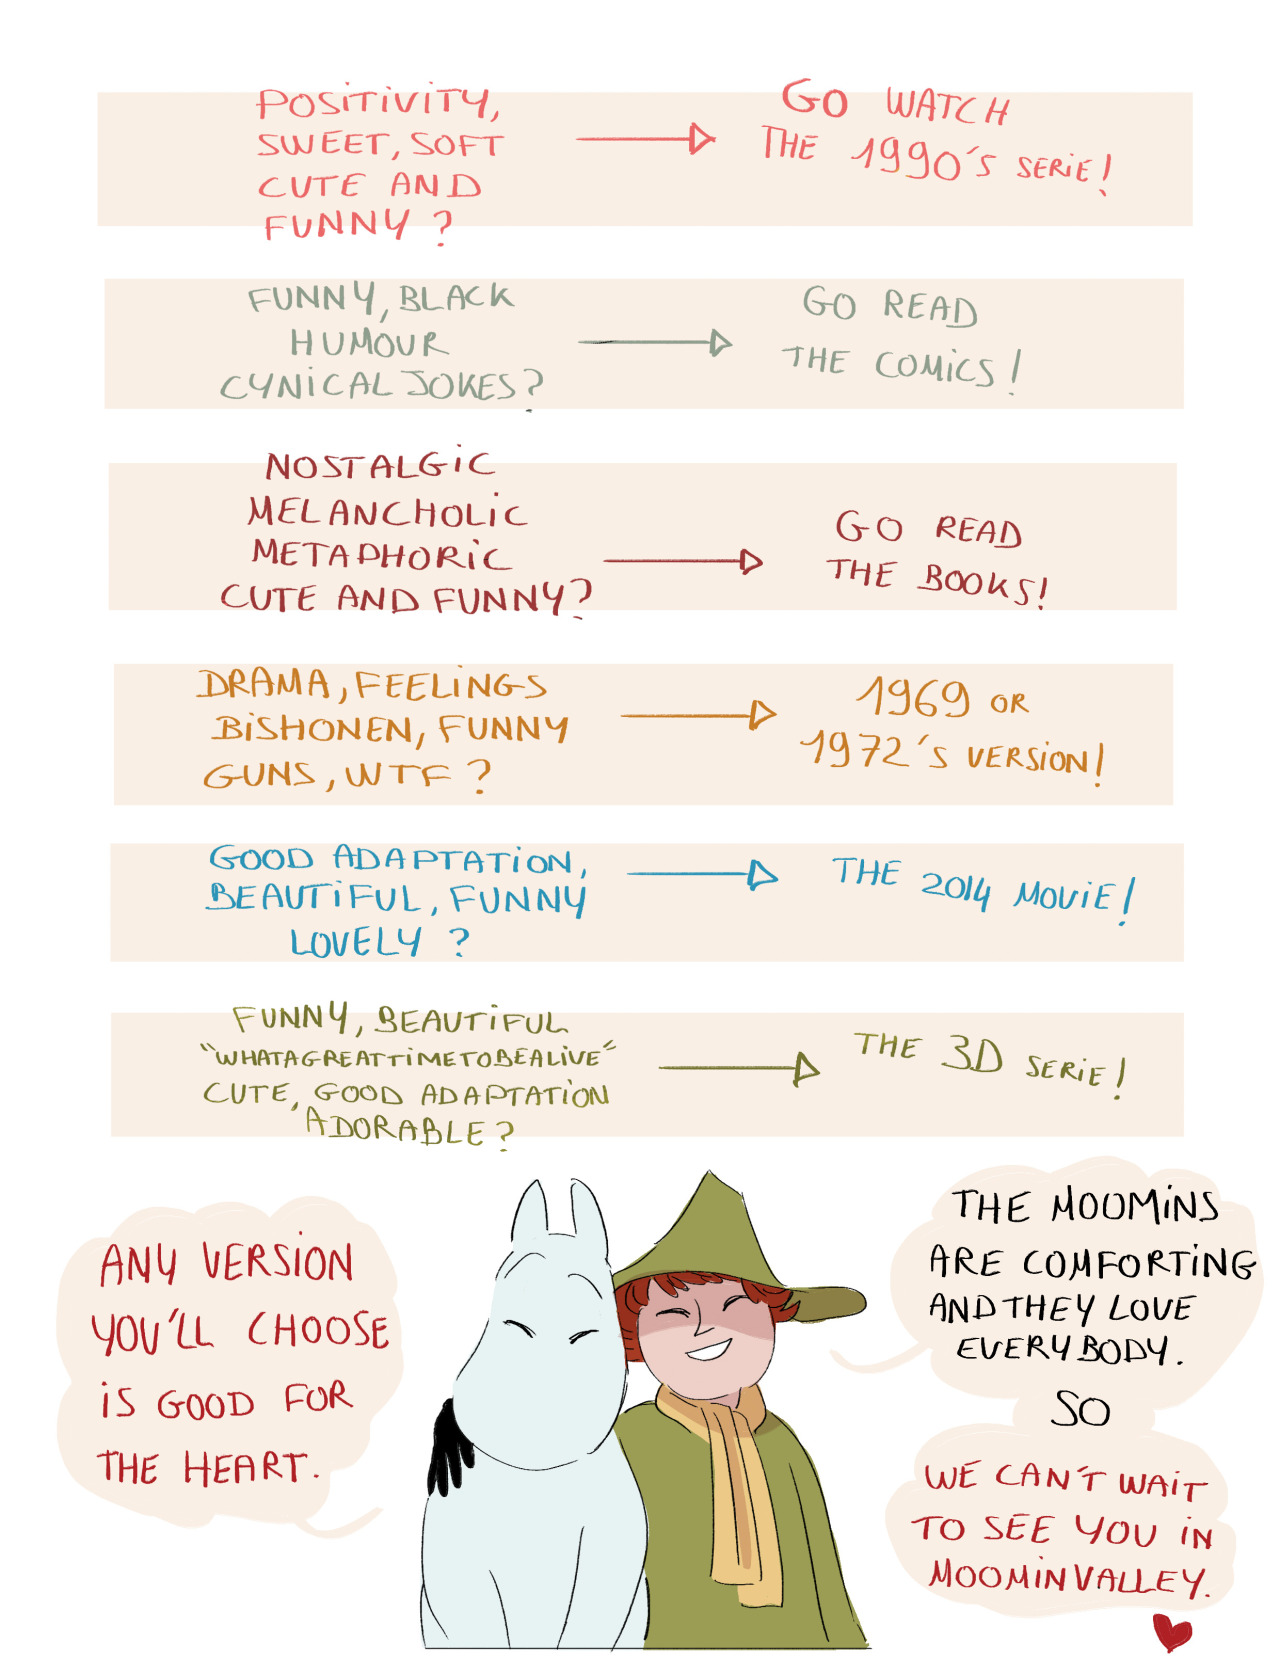 POSiTiViTY,
SWEET, SOFT
CUTE AND
FUNNY ?
GO WATCH
THE 1990'S SERiE !
FUNNY, BLACK
HUMOUR
CYNiCAL JOKES ?
GO READ
THE COMiCS !
NOSTALGiC
MELANCHOLiC
METAPHORiC
CUTE AND FUNNY ?
GO READ
THE BOOKS !
DRAMA, FEELiNGS
BiSHONEN, FUNNY
GUNS, WTF ?
1969 OR
1972'S VERSiON !
GOOD ADAPTATiON,
BEAUTiFUL, FUNNY
LOVELY ?
THE 2014 MOViE !
FUNNY, BEAUTiFUL
"WHATAGREATTiMETOBEALiVE"
CUTE, GOOD ADAPTATiON
ADORABLE ?
THE 3D SERiE !
ANY VERSiON
YOU'LL CHOOSE
iS GOOD FOR
THE HEART.
THE MOOMiNS
ARE COMFORTiNG
AND THEY LOVE
EVERYBODY.
SO
WE CAN'T WAiT
TO SEE YOU iN
MOOMiNVALLEY.